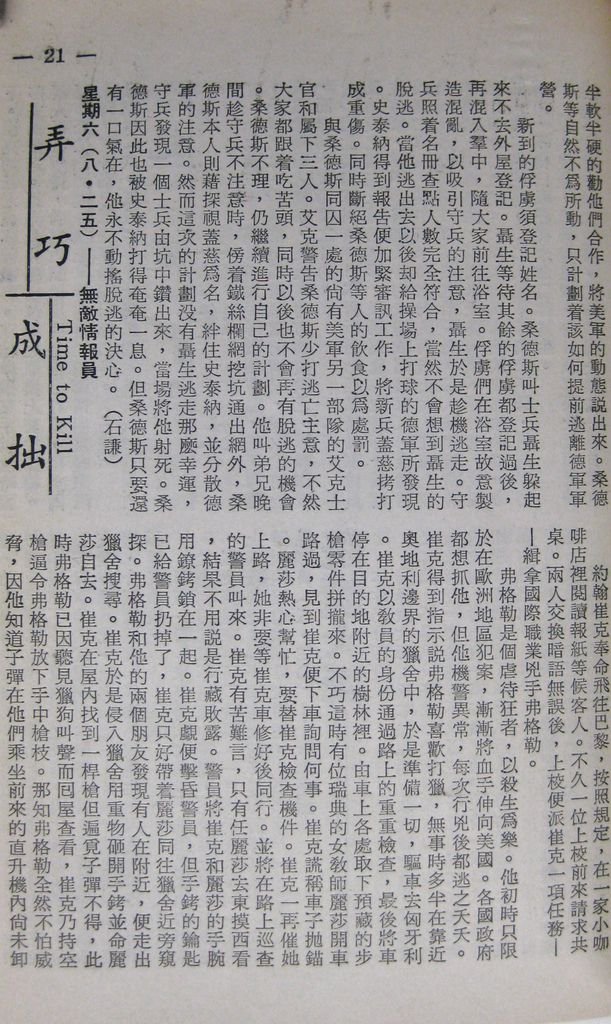 — 21 —
半軟半硬的勸他們合作，將美軍的動態説出來。桑德
斯等自然不爲所動，只計劃着該如何提前逃離德軍軍
營。
新到的俘虜須登記姓名。桑德斯叫士兵聶生躲起
來不去外屋登記。聶生等待其餘的俘虜都登記過後，
再混入羣中，隨大家前往浴室。俘虜們在浴室故意製
造混亂，以吸引守兵的注意，聶生於是趁機逃走。守
兵照着名冊查點人數完全符合，當然不會想到聶生的
脫逃。當他逃出去以後却給操場上打球的德軍所發現
。史泰納得到報告便加緊審訊工作，將新兵蓋慈拷打
成重傷。同時斷絕桑德斯等人的飲食以爲處罰。
與桑德斯同囚一處的尚有美軍另一部隊的艾克士
官和屬下三人。艾克警告桑德斯少打逃亡主意，不然
大家都跟着吃苦頭，同時以後也不會再有脫逃的機會
。桑德斯不理，仍繼續進行自己的計劃。他叫弟兄晚
間趁守兵不注意時，傍着鐵絲欄網挖坑通出網外，桑
德斯本人則藉探視蓋慈爲名，絆住史泰納，並分散德
軍的注意。然而這次的計劃没有聶生逃走那麽幸運，
守兵發現一個士兵由坑中鑽出來，當場將他射死。桑
德斯因此也被史泰納打得奄奄一息。但桑德斯只要還
有一口氣在，他永不動搖脫逃的決心。（石謙）
星期六（八・二五）——無敵情報員
弄巧成拙
Time to Kill
約翰崔克奉命飛往巴黎，按照規定，在一家小咖
啡店裡閱讀報紙等候客人。不久一位上校前來請求共
桌。兩人交換暗語無誤後，上校便派崔克一項任務—
—緝拿國際職業兇手弗格勒。
弗格勒是個虐待狂者，以殺生爲樂。他初時只限
於在歐洲地區犯案，漸漸將血手伸向美國。各國政府
都想抓他，但他機警異常，每次行兇後都逃之夭夭。
崔克得到指示説弗格勒喜歡打獵，無事時多半在靠近
奧地利邊界的獵舍中，於是準備一切，驅車去匈牙利
。崔克以敎員的身份通過路上的重重檢查，最後將車
停在目的地附近的樹林裡。由車上各處取下預藏的步
槍零件拼攏來。不巧這時有位瑞典的女敎師麗莎開車
路過，見到崔克便下車詢問何事。崔克謊稱車子抛錨
。麗莎熱心幫忙，要替崔克檢查機件。崔克一再催她
上路，她非要等崔克車修好後同行。並將在路上巡查
的警員叫來。崔克有苦難言，只有任麗莎去東摸西看
，結果不用說是行藏敗露。警員將崔克和麗莎的手腕
用鐐銬鎖在一起。崔克覷便擊昏警員，但手銬的鑰匙
已給警員扔掉了，崔克只好帶着麗莎同往獵舍近旁窺
探。弗格勒和他的兩個朋友發現有人在附近，便走出
獵舍搜尋。崔克於是侵入獵舍用重物砸開手銬並命麗
莎自去。崔克在屋内找到一桿槍但遍覓子彈不得，此
時弗格勒已因聽見獵狗叫聲而囘屋查看，崔克乃持空
槍逼令弗格勒放下手中槍枝。那知弗格勒全然不怕威
脅，因他知道子彈在他們乘坐前來的直升機内尚未卸